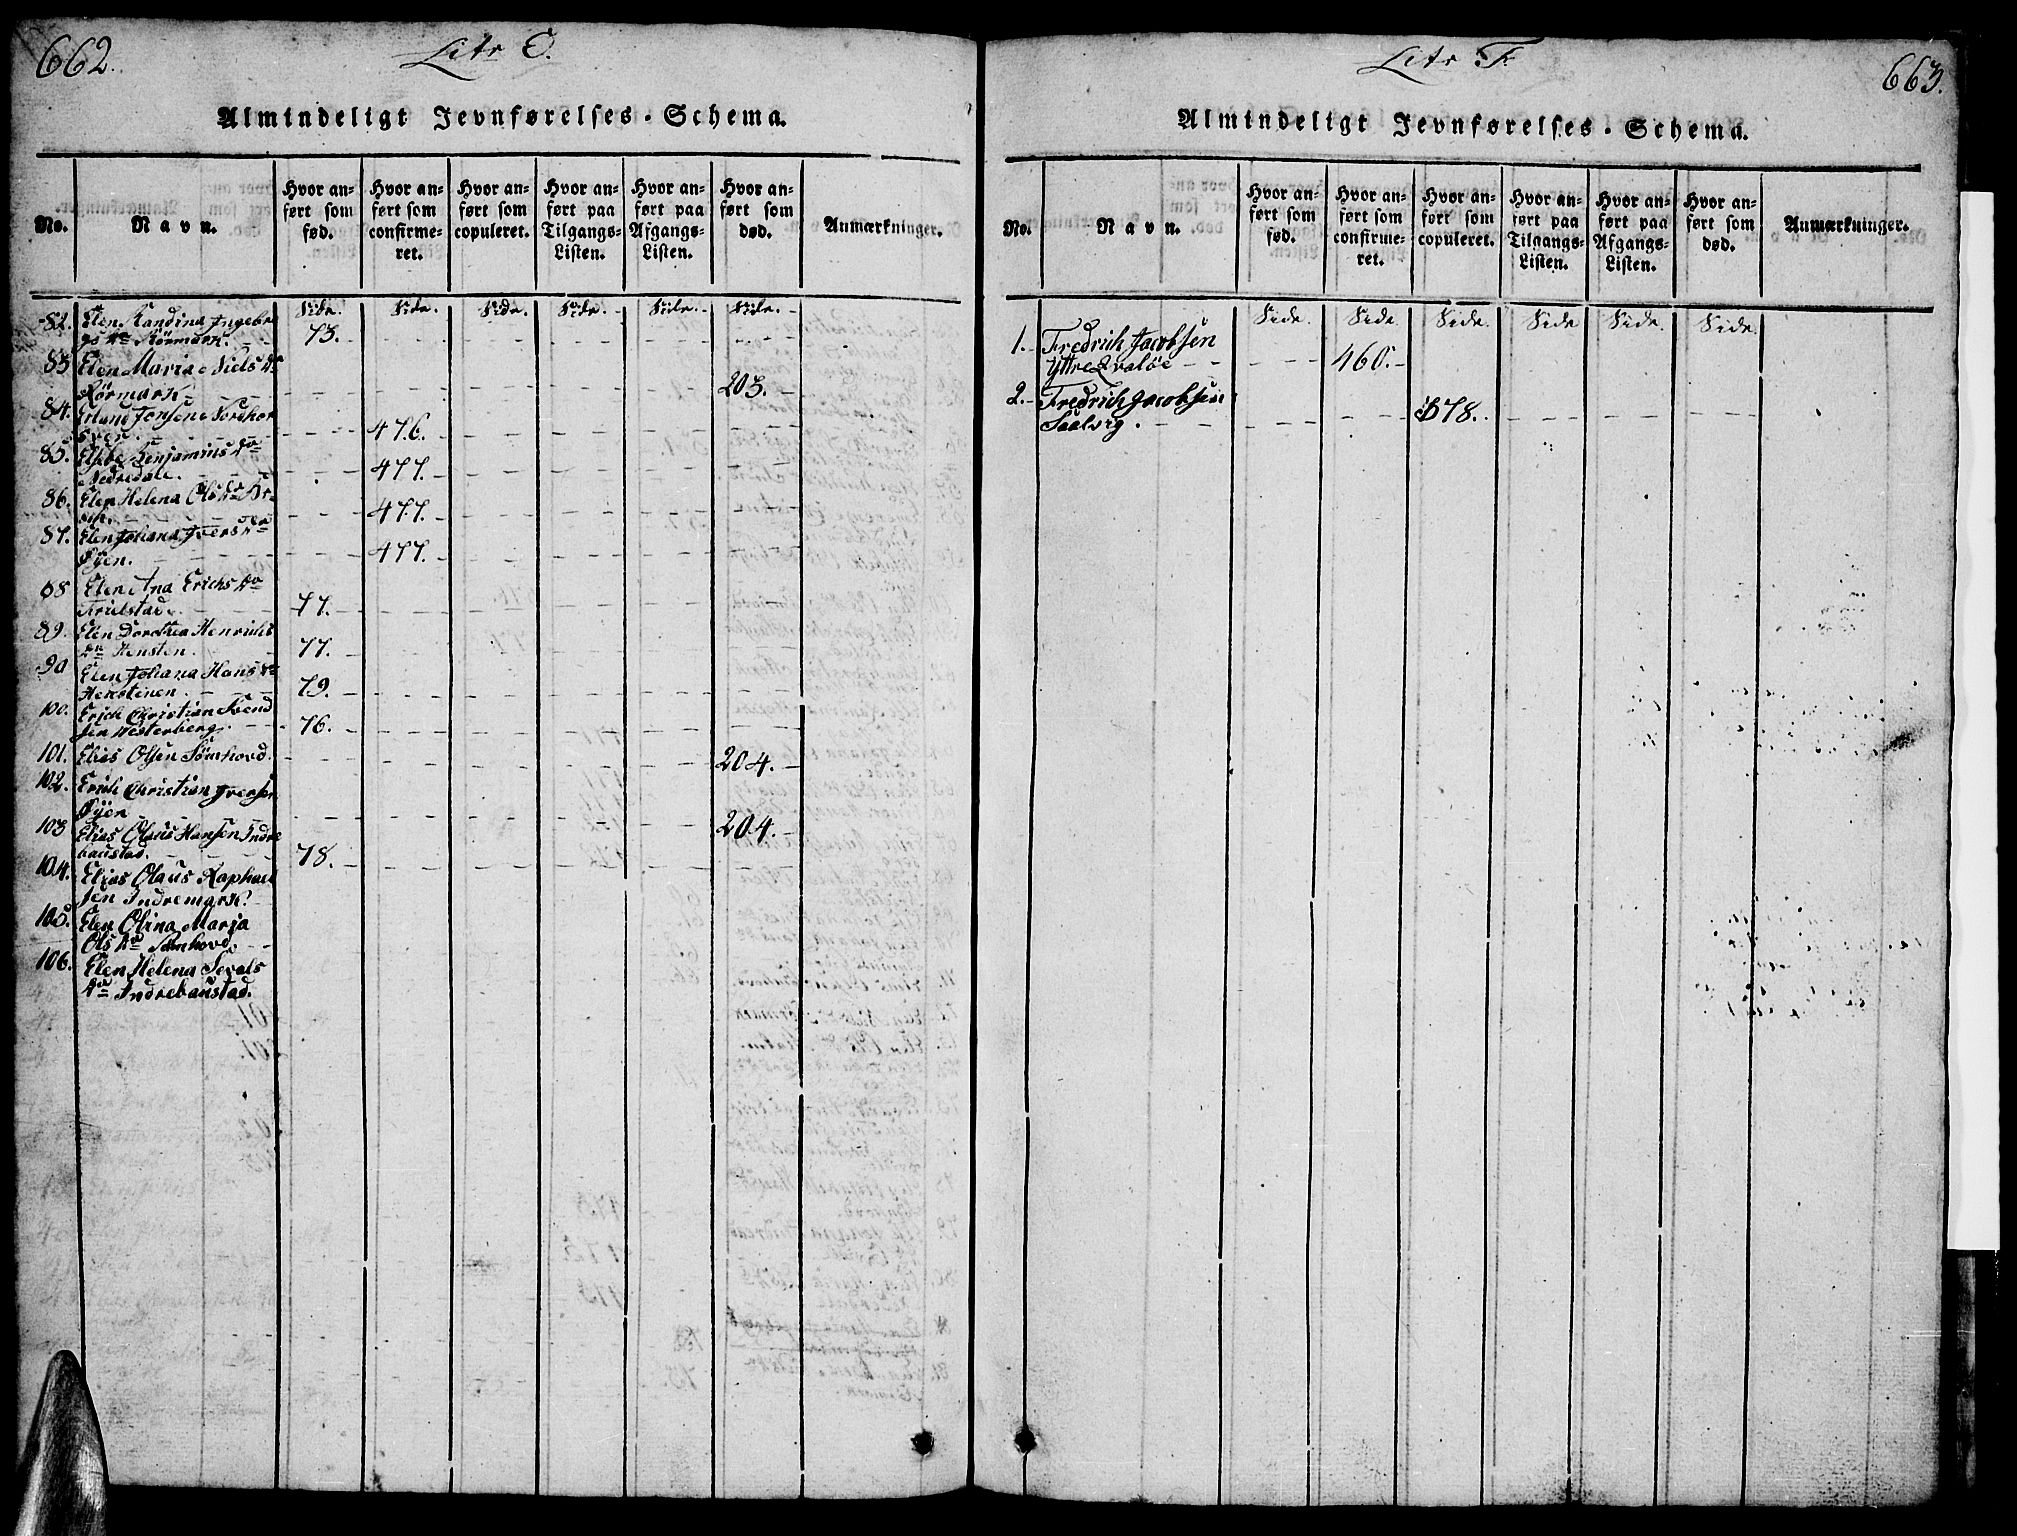 662.
Litr E.
Almindeligt Jevnførelses-Schema.
No.
Navn.
Hvor anført som fød.
Hvor anført som confirmeret.
Hvor anført som copuleret.
Hvor anført paa Tilgangs-Listen.
Hvor anført paa Afgangs-Listen.
Hvor anført som død.
Anmærkninger.
Side. Side. Side. Side. Side. Side.
82. Elen Randina Ingebr
gs Dr Rörmark. 73.
83 Elen Maria Niels Dr
Rörmark 203.
84. Erland Jonsen Nordhor
sven 476.
85. Ebbe Benjamins Dr
Nedredale. 477.
86. Elen Helena Ols Dr
477.
87. Elen Johana Ivers Dr
Øyen. 477.
88 Elen Ana Erichs Dr
77.
89. Elen Dorothea Henrichs
Dr Hensten. 77.
90 Elen Johana Hans Dr
Henstenen. 79.
100. Erich Christian Svend
sen Westerberg. 76.
101. Elias Olsen Sömhovd. 204.
102. Erich Christian Iversen
Øyen 204.
103 Elias Olaus Hansen Indre
baustad. 78.
104. Elias Olaus Raphael
sen Indremark.
105. Elen Olina Maria
Ols Dr Sömhovd.
106. Elen Helena Sevals
Dr Indrebaustad.
663.
Litr F.
Almindeligt Jevnførelses-Schema.
No.
Navn.
Hvor anført som fød.
Hvor anført som confirmeret.
Hvor anført som copuleret.
Hvor anført paa Tilgangs-Listen.
Hvor anført paa Afgangs-Listen.
Hvor anført som død.
Anmærkninger.
Side. Side Side. Side Side. Side
1. Fredrich Jacobsen
Yttre Qvaløe 460.
2. Fredrich Jacobsen
Saalvig. 378.